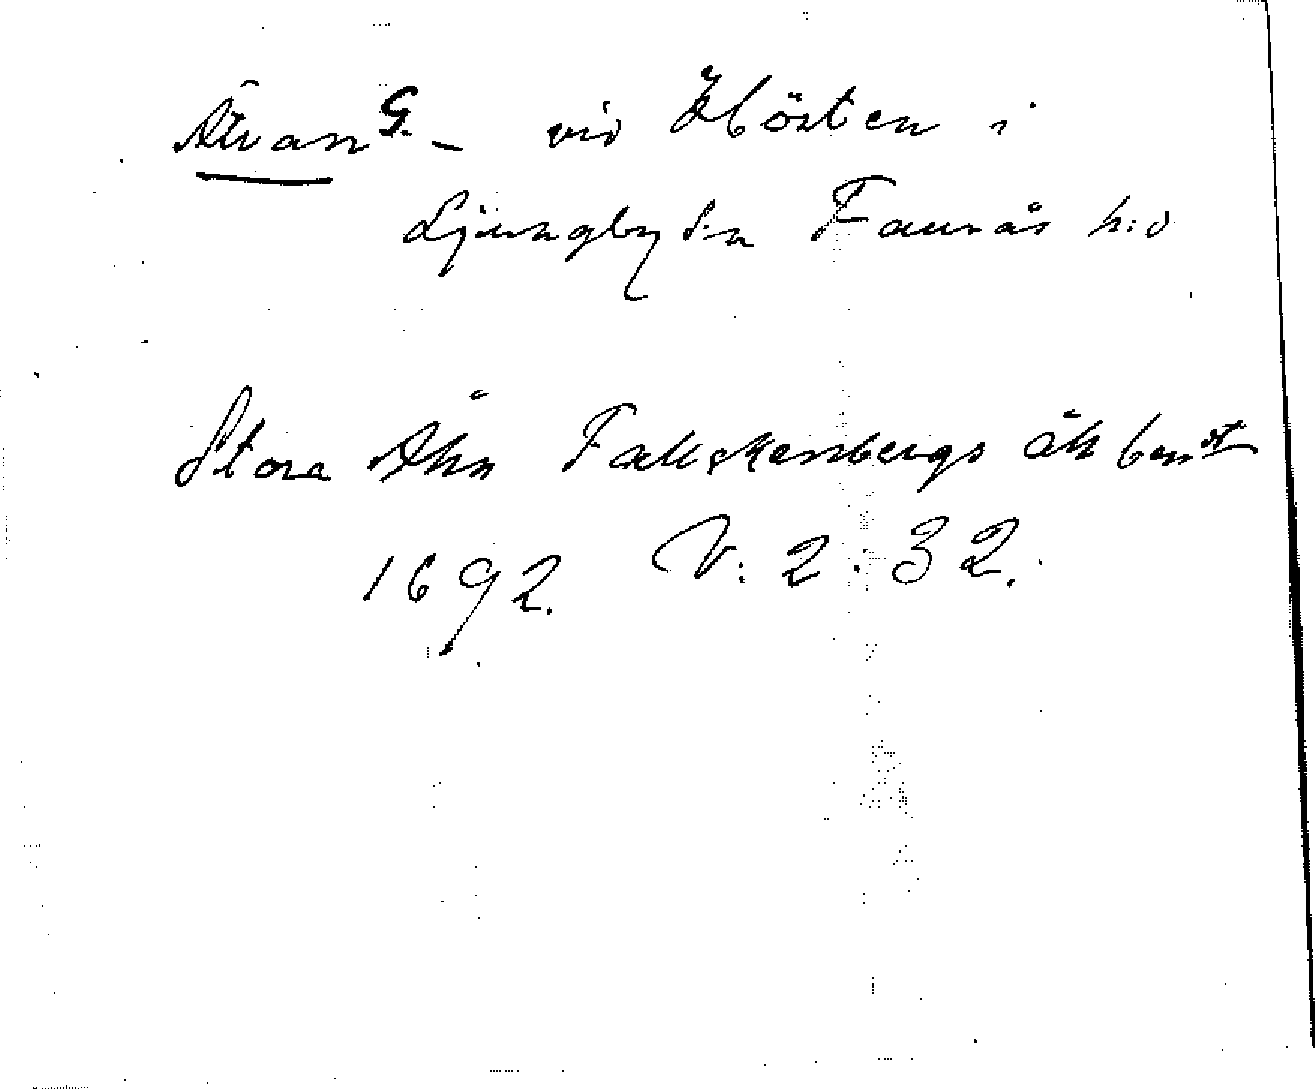 Ätran G. - vid Hörten i
Ljungby s:n Faurås h:d
Stora Åhn Falkskenbergs
1692. V: 2: 32.